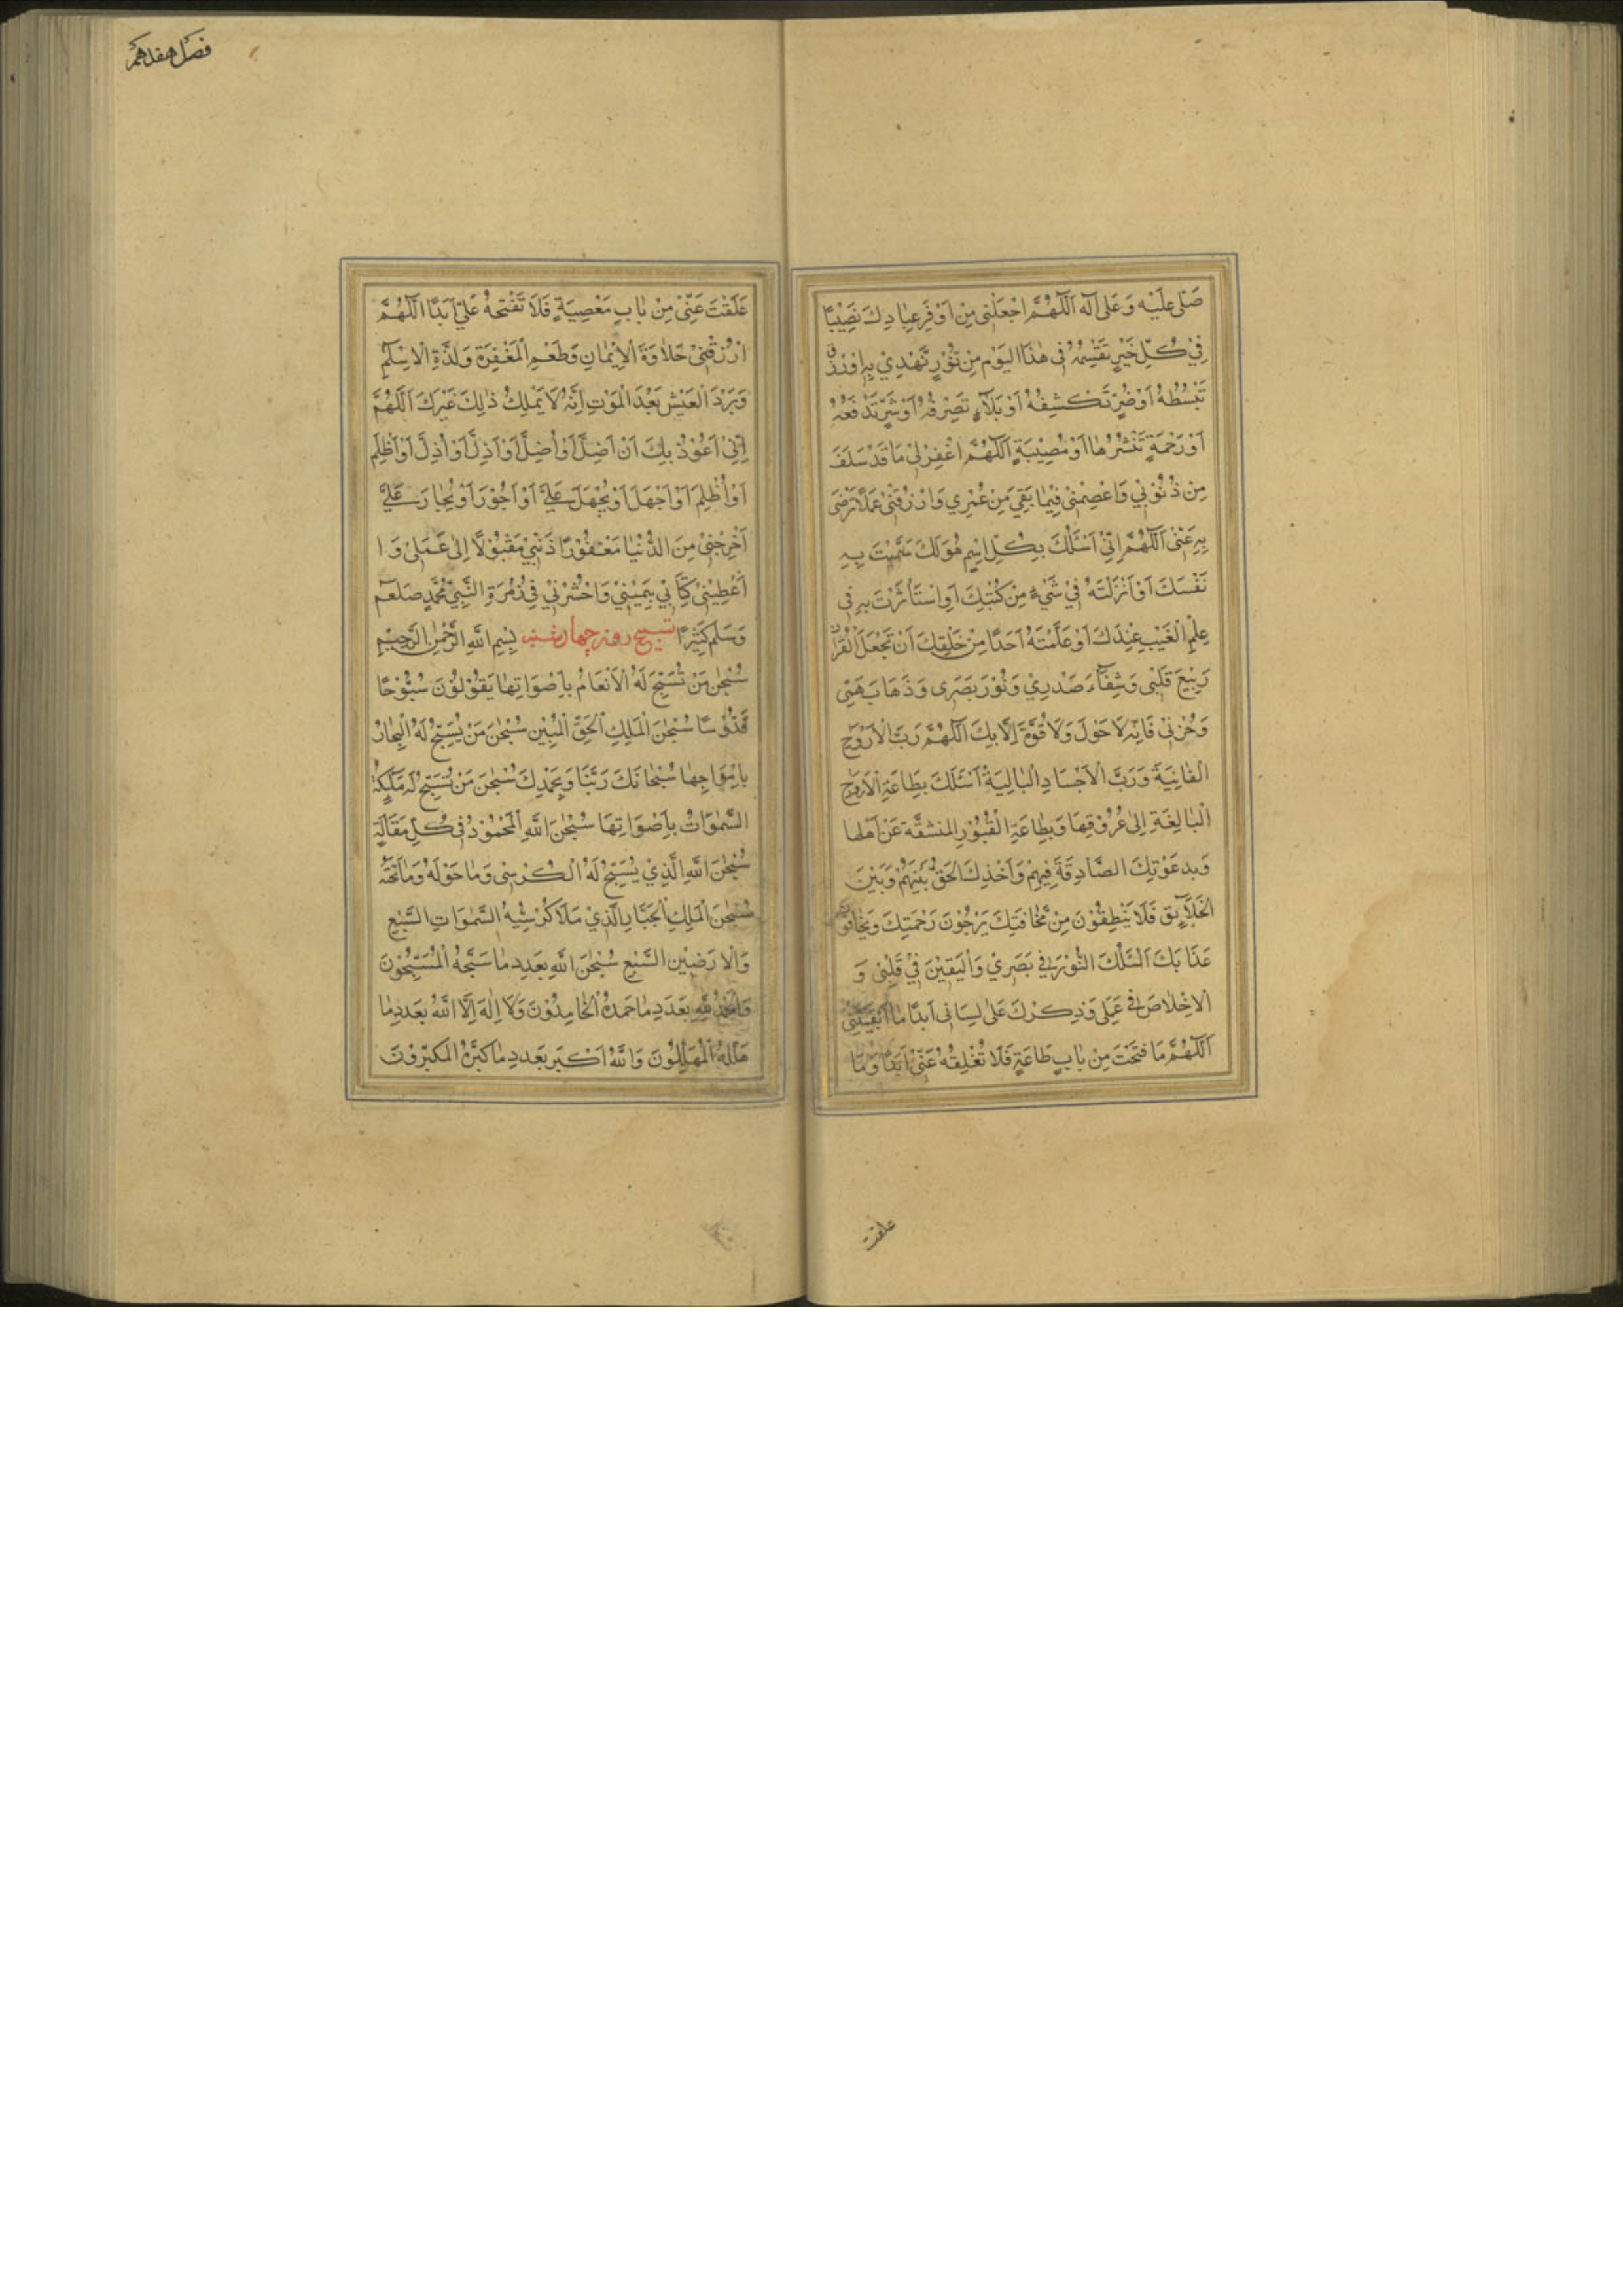 صَلِّ عَلَيْهِ وَعَلٰى اٰلِهٖ اَللّٰهُمَّ اجْعَلْنِيْ مِنْ اَوْفَرِ عِبَادِكَ نَصِيْبًا
فِيْ كُلِّ خَيْرٍ تَقْسِمُهٗ فِيْ هٰذَا الْيَوْمِ مِنْ نُوْرٍ تَهْدِيْ بِهٖ اَوْ رِزْقٍ
تَبْسُطُهٗ اَوْ ضُرٍّ تَكْشِفُهٗ اَوْ بَلَآءٍ تَصْرِفُهٗ اَوْ شَرٍّ تَدْفَعُهٗ
اَوْ رَحْمَةٍ تَنْشُرُهَا اَوْ مُصِيْبَةٍ اَللّٰهُمَّ اغْفِرْ لِيْ مَا قَدْ سَلَفَ
مِنْ ذُنُوْبِيْ وَاعْصِمْنِيْ فِيْمَا بَقِيَ مِنْ عُمْرِيْ وَارْزُقْنِيْ عَمَلًا تَرْضٰى
بِهٖ عَنِّيْ اَللّٰهُمَّ اِنِّيْ اَسْئَلُكَ بِكُلِّ اسْمٍ هُوَ لَكَ سَمَّيْتَ بِهٖ
نَفْسَكَ اَوْ اَنْزَلْتَهٗ فِيْ شَيْءٍ مِنْ كُتُبِكَ اَوِ اسْتَأْثَرْتَ بِهٖ فِيْ
عِلْمِ الْغَيْبِ عِنْدَكَ اَوْ عَلَّمْتَهٗ اَحَدًا مِنْ خَلْقِكَ اَنْ تَجْعَلَ الْقُرْاٰنَ
رَبِيْعَ قَلْبِيْ وَشِفَآءَ صَدْرِيْ وَنُوْرَ بَصَرِيْ وَذَهَابَ هَمِّيْ
وَحُزْنِيْ فَاِنَّهٗ لَا حَوْلَ وَلَا قُوَّةَ اِلَّا بِكَ اَللّٰهُمَّ رَبَّ الْاَرْوَاحِ
الْفَانِيَةِ وَرَبَّ الْاَجْسَادِ الْبَالِيَةِ اَسْئَلُكَ بِطَاعَةِ الْاَرْوَاحِ
الْبَالِغَةِ اِلٰى عُرُوْقِهَا وَبِطَاعَةِ الْقُبُوْرِ الْمُنْشَقَّةِ عَنْ اَهْلِهَا
وَبِدَعْوَتِكَ الصَّادِقَةِ فِيْهِمْ وَاَخْذِكَ الْحَقَّ بَيْنَهُمْ وَبَيْنَ
الْخَلَآئِقِ فَلَا يَنْطِقُوْنَ مِنْ مَخَافَتِكَ يَرْجُوْنَ رَحْمَتَكَ وَيَخَافُوْنَ
عَذَابَكَ اَسْئَلُكَ النُّوْرَ فِيْ بَصَرِيْ وَالْيَقِيْنَ فِيْ قَلْبِيْ وَ
الْاِخْلَاصَ فِيْ عَمَلِيْ وَذِكْرَكَ عَلٰى لِسَانِيْ اَبَدًا مَا اَبْقَيْتَنِيْ
اَللّٰهُمَّ مَا فَتَحْتَ مِنْ بَابِ طَاعَةٍ فَلَا تُغْلِقْهُ عَنِّيْ اَبَدًا وَمَا
علقت
فصل هفدهم
غَلَقْتَ عَنِّيْ مِنْ بَابِ مَعْصِيَةٍ فَلَا تَفْتَحْهُ عَلَيَّ اَبَدًا اَللّٰهُمَّ
ارْزُقْنِيْ حَلَاوَةَ الْاِيْمَانِ وَطَعْمَ الْمَغْفِرَةِ وَلَذَّةَ الْاِسْلٰمِ
وَبَرْدَ الْعَيْشِ بَعْدَ الْمَوْتِ اِنَّهٗ لَا يَمْلِكُ ذٰلِكَ غَيْرُكَ اَللّٰهُمَّ
اِنِّيْ اَعُوْذُ بِكَ اَنْ اَضِلَّ اَوْ اُضِلَّ اَوْ اَذِلَّ اَوْ اُذِلَّ اَوْ اَظْلِمَ
اَوْ اُظْلَمَ اَوْ اَجْهَلَ اَوْ يُجْهَلَ عَلَيَّ اَوْ اَجُوْرَ اَوْ يُجَارَ عَلَيَّ
اَخْرِجْنِيْ مِنَ الدُّنْيَا مَغْفُوْرًا ذَنْبِيْ مَقْبُوْلًا اِلٰى عَمَلِيْ وَ ا
اَعْطِيْنِيْ كِتَابِيْ بِيَمِيْنِيْ وَاحْشُرْنِيْ فِيْ زُمْرَةِ النَّبِيِّ مُحَمَّدٍ صلعم
وَسَلَّمَ كَثِيْرًا تسبیح روز چهارشنبه بِسْمِ اللّٰهِ الرَّحْمٰنِ الرَّحِيْمِ
سُبْحٰنَ مَنْ تُسَبِّحُ لَهُ الْاَنْعَامُ بِاَصْوَاتِهَا يَقُوْلُوْنَ سُبُّوْحًا
قُدُّوْسًا سُبْحٰنَ الْمَلِكِ الْحَقِّ الْمُبِيْنِ سُبْحٰنَ مَنْ يُسَبِّحُ لَهُ الْبِحَارُ
بِاَمْوَاجِهَا سُبْحَانَكَ رَبَّنَا وَبِحَمْدِكَ سُبْحٰنَ مَنْ تُسَبِّحُ لَهٗ مَلٰٓئِكَةُ
السَّمٰوَاتِ بِاَصْوَاتِهَا سُبْحٰنَ اللّٰهِ الْمَحْمُوْدِ فِيْ كُلِّ مَقَالَةٍ
سُبْحٰنَ اللّٰهِ الَّذِيْ يُسَبِّحُ لَهُ الْكُرْسِيُّ وَمَا حَوْلَهٗ وَمَا تَحْتَهٗ
سُبْحٰنَ الْمَلِكِ الْجَبَّارِ الَّذِيْ مَلَاَ كُرْسِيُّهُ السَّمٰوَاتِ السَّبْعِ
وَالْاَرَضِيْنَ السَّبْعِ سُبْحٰنَ اللّٰهِ بِعَدَدِ مَا سَبَّحَهُ الْمُسَبِّحُوْنَ
وَالْحَمْدُ لِلّٰهِ بِعَدَدِ مَا حَمِدَهُ الْحَامِدُوْنَ وَلَا اِلٰهَ اِلَّا اللّٰهُ بِعَدَدِ مَا
هَلَّلَهُ الْمُهَلِّلُوْنَ وَاللّٰهُ اَكْبَرُ بِعَدَدِ مَا كَبَّرَهُ الْمُكَبِّرُوْنَ